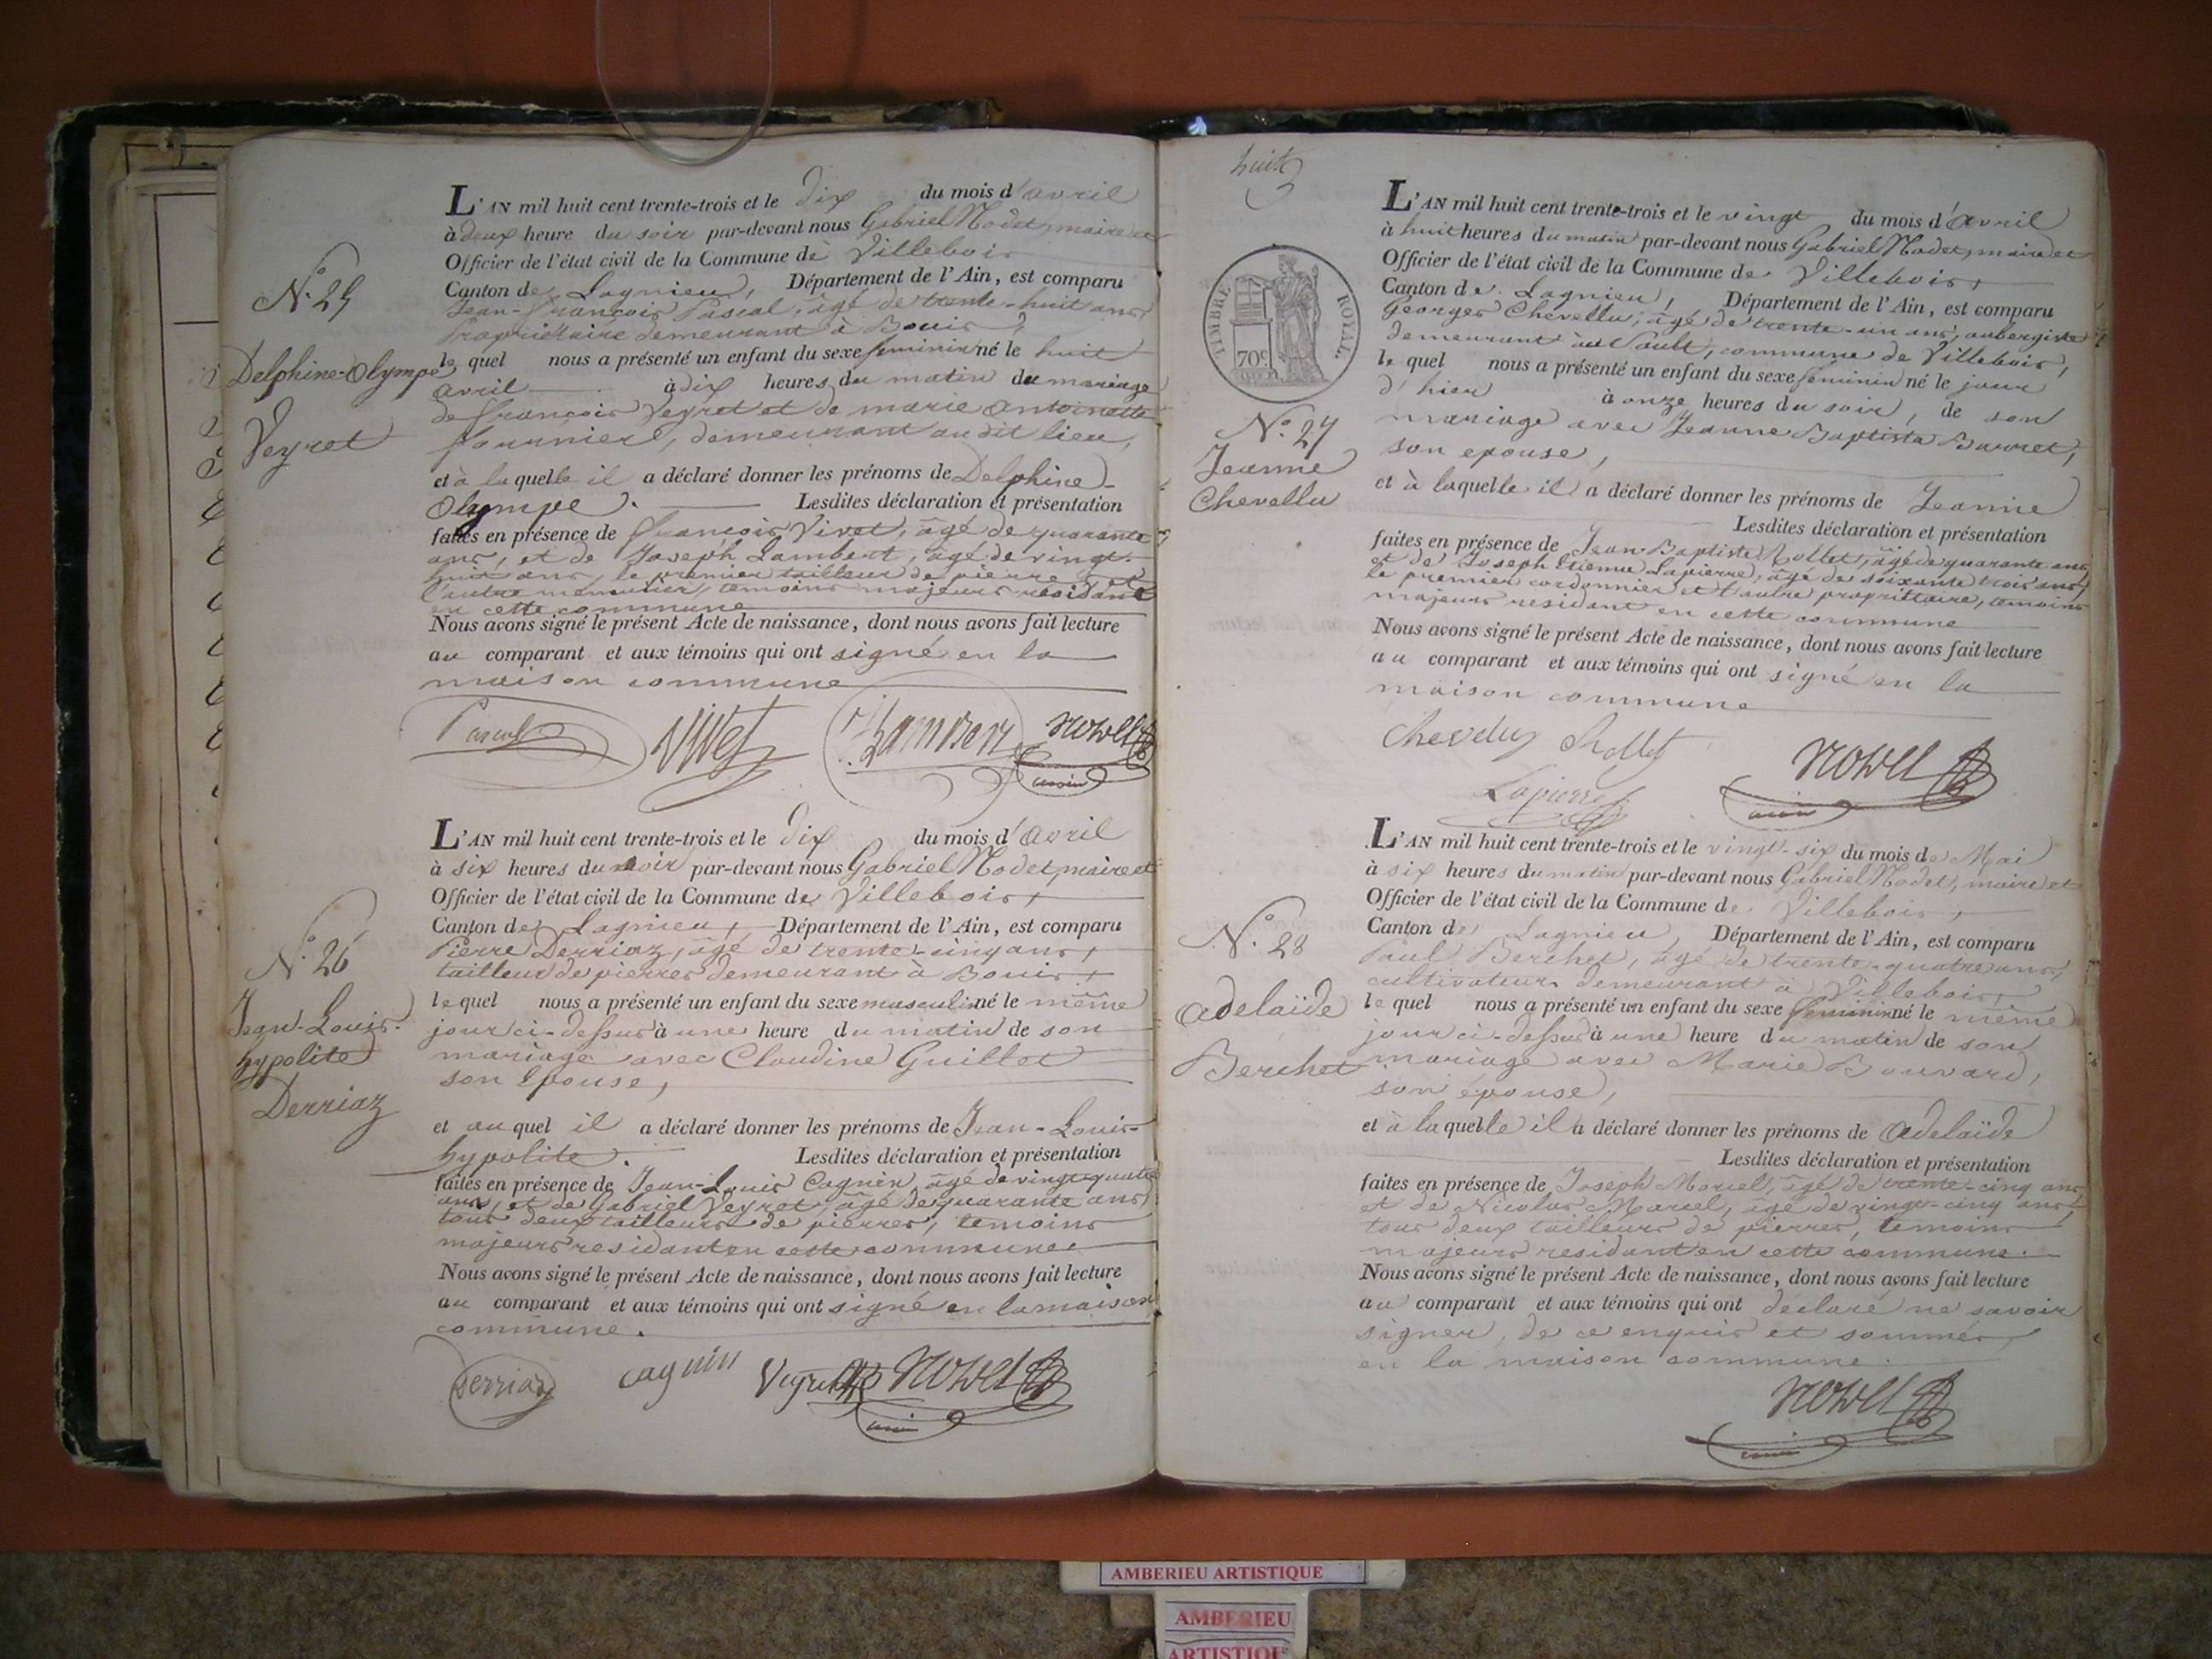 L'AN mil huit cent trente-trois et le dix du mois d'avril
à deux heure du soir par-devant nous Gabriel Nodet, maire et
Officier de l'état civil de la Commune de Villebois
Canton de Lagnieu, Département de l'Ain, est comparu
Jean-François Pascal, âgé de trente-huit ans
propriétaire demeurant à Bouis,
le quel nous a présenté un enfant du sexe féminin né le huit
avril à dix heures du matin du mariage
de françois Veyret et de marie antoinette
fournier, demeurant au dit lieu,
et à la quelle il a déclaré donner les prénoms de Delphine-
Olympe. Lesdites déclaration et présentation
faites en présence de françois Vivet, âgé de quarante
ans, et de Joseph Lambert, âgé de vingt-
huit ans, le premier tailleur de pierre et
l'autre menuisier, temoins majeurs residant
en cette commune
Nous avons signé le présent Acte de naissance, dont nous avons fait lecture
au comparant et aux témoins qui ont signé en la
maison commune
Pascal Vivet
N.° 25
Delphine-Olympe
Veyret
L'AN mil huit cent trente-trois et le dix du mois d'avril
à six heures du soir par-devant nous Gabriel Nodet, maire et
Officier de l'état civil de la Commune de Villebois,
Canton de Lagnieu, Département de l'Ain, est comparu
Pierre Derriaz, âgé de trente-cinq ans,
tailleur de pierres demeurant à Bouis,
le quel nous a présenté un enfant du sexe masculin né le même
jour ci-dessus à une heure du matin de son
mariage avec Claudine Guillet
son épouse,
et au quel il a déclaré donner les prénoms de Jean-Louis-
hypolite. Lesdites déclaration et présentation
faites en présence de Jean-Louis Cagnin, âgé de vingt-quatre
ans, et de Gabriel Veyret, âgé de quarante ans,
tous deux tailleurs de pierres, temoins
majeurs residant en cette commune
Nous avons signé le présent Acte de naissance, dont nous avons fait lecture
au comparant et aux témoins qui ont signé en la maison
commune.
Derriaz cagnin Veyret
N.° 26
Jean-Louis-
hypolite
Derriaz
huit
TIMBRE ROYAL
70c
N.° 27
Jeanne
Chevellu
L'AN mil huit cent trente-trois et le vingt du mois d'avril
à huit heures du matin par-devant nous Gabriel Nodet, maire et
Officier de l'état civil de la Commune de Villebois,
Canton de Lagnieu, Département de l'Ain, est comparu
Georges Chevellu, âgé de trente-un ans, aubergiste
demeurant au Sault, commune de Villebois,
le quel nous a présenté un enfant du sexe féminin né le jour
d'hier à onze heures du soir, de son
mariage avec Jeanne Baptista Barret,
son epouse,
et à laquelle il a déclaré donner les prénoms de Jeanne
Lesdites déclaration et présentation
faites en présence de Jean-Baptiste Rollet, âgé de quarante ans
et de Joseph Etienne Lapierre, âgé de soixante trois ans,
le premier cordonnier et l'autre propriétaire, temoins
majeurs residant en cette commune
Nous avons signé le présent Acte de naissance, dont nous avons fait lecture
au comparant et aux témoins qui ont signé en la
maison commune
Chevelu Rollet
Lapierre
L'AN mil huit cent trente-trois et le vingt-six du mois de Mai
à six heures du matin par-devant nous Gabriel Nodet, maire et
Officier de l'état civil de la Commune de Villebois,
Canton de Lagnieu, Département de l'Ain, est comparu
Paul Berchet, âgé de trente-quatre ans,
cultivateur demeurant à Villebois,
le quel nous a présenté un enfant du sexe féminin né le même
jour ci-dessus à une heure du matin de son
mariage avec Marie Bouvard,
son épouse,
et à la quelle il a déclaré donner les prénoms de adelaïde
Lesdites déclaration et présentation
faites en présence de Joseph Marcel, âgé de trente-cinq ans,
et de Nicolas Marcel, âgé de vingt-cinq ans,
tous deux tailleurs de pierres, temoins
majeurs residant en cette commune.
Nous avons signé le présent Acte de naissance, dont nous avons fait lecture
au comparant et aux témoins qui ont déclaré ne savoir
signer, de ce enquis et sommés,
en la maison commune.
N.° 28
adelaïde
Berchet
AMBERIEU ARTISTIQUE
AMBERIEU
ARTISTIQUE